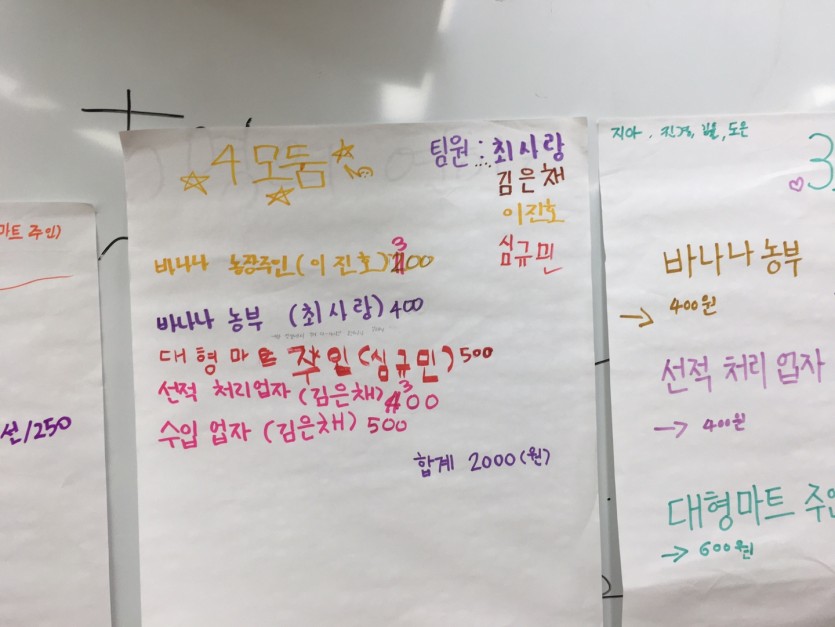 마트 주인)
선/250
4 모둠
팀원 : 최사랑
김은채
이진호
심규민
바나나 농장주인(이 진호) 300
바나나 농부 (최사랑) 400
대형마트 주인(심규민) 500
선적 처리업자(김은채) 300
수입 업자 (김은채) 500
합계 2000(원)
지아, 진경, 도은
3
바나나 농부
→ 400원
선적 처리 업자
→ 400원
대형마트 주인
→ 600원